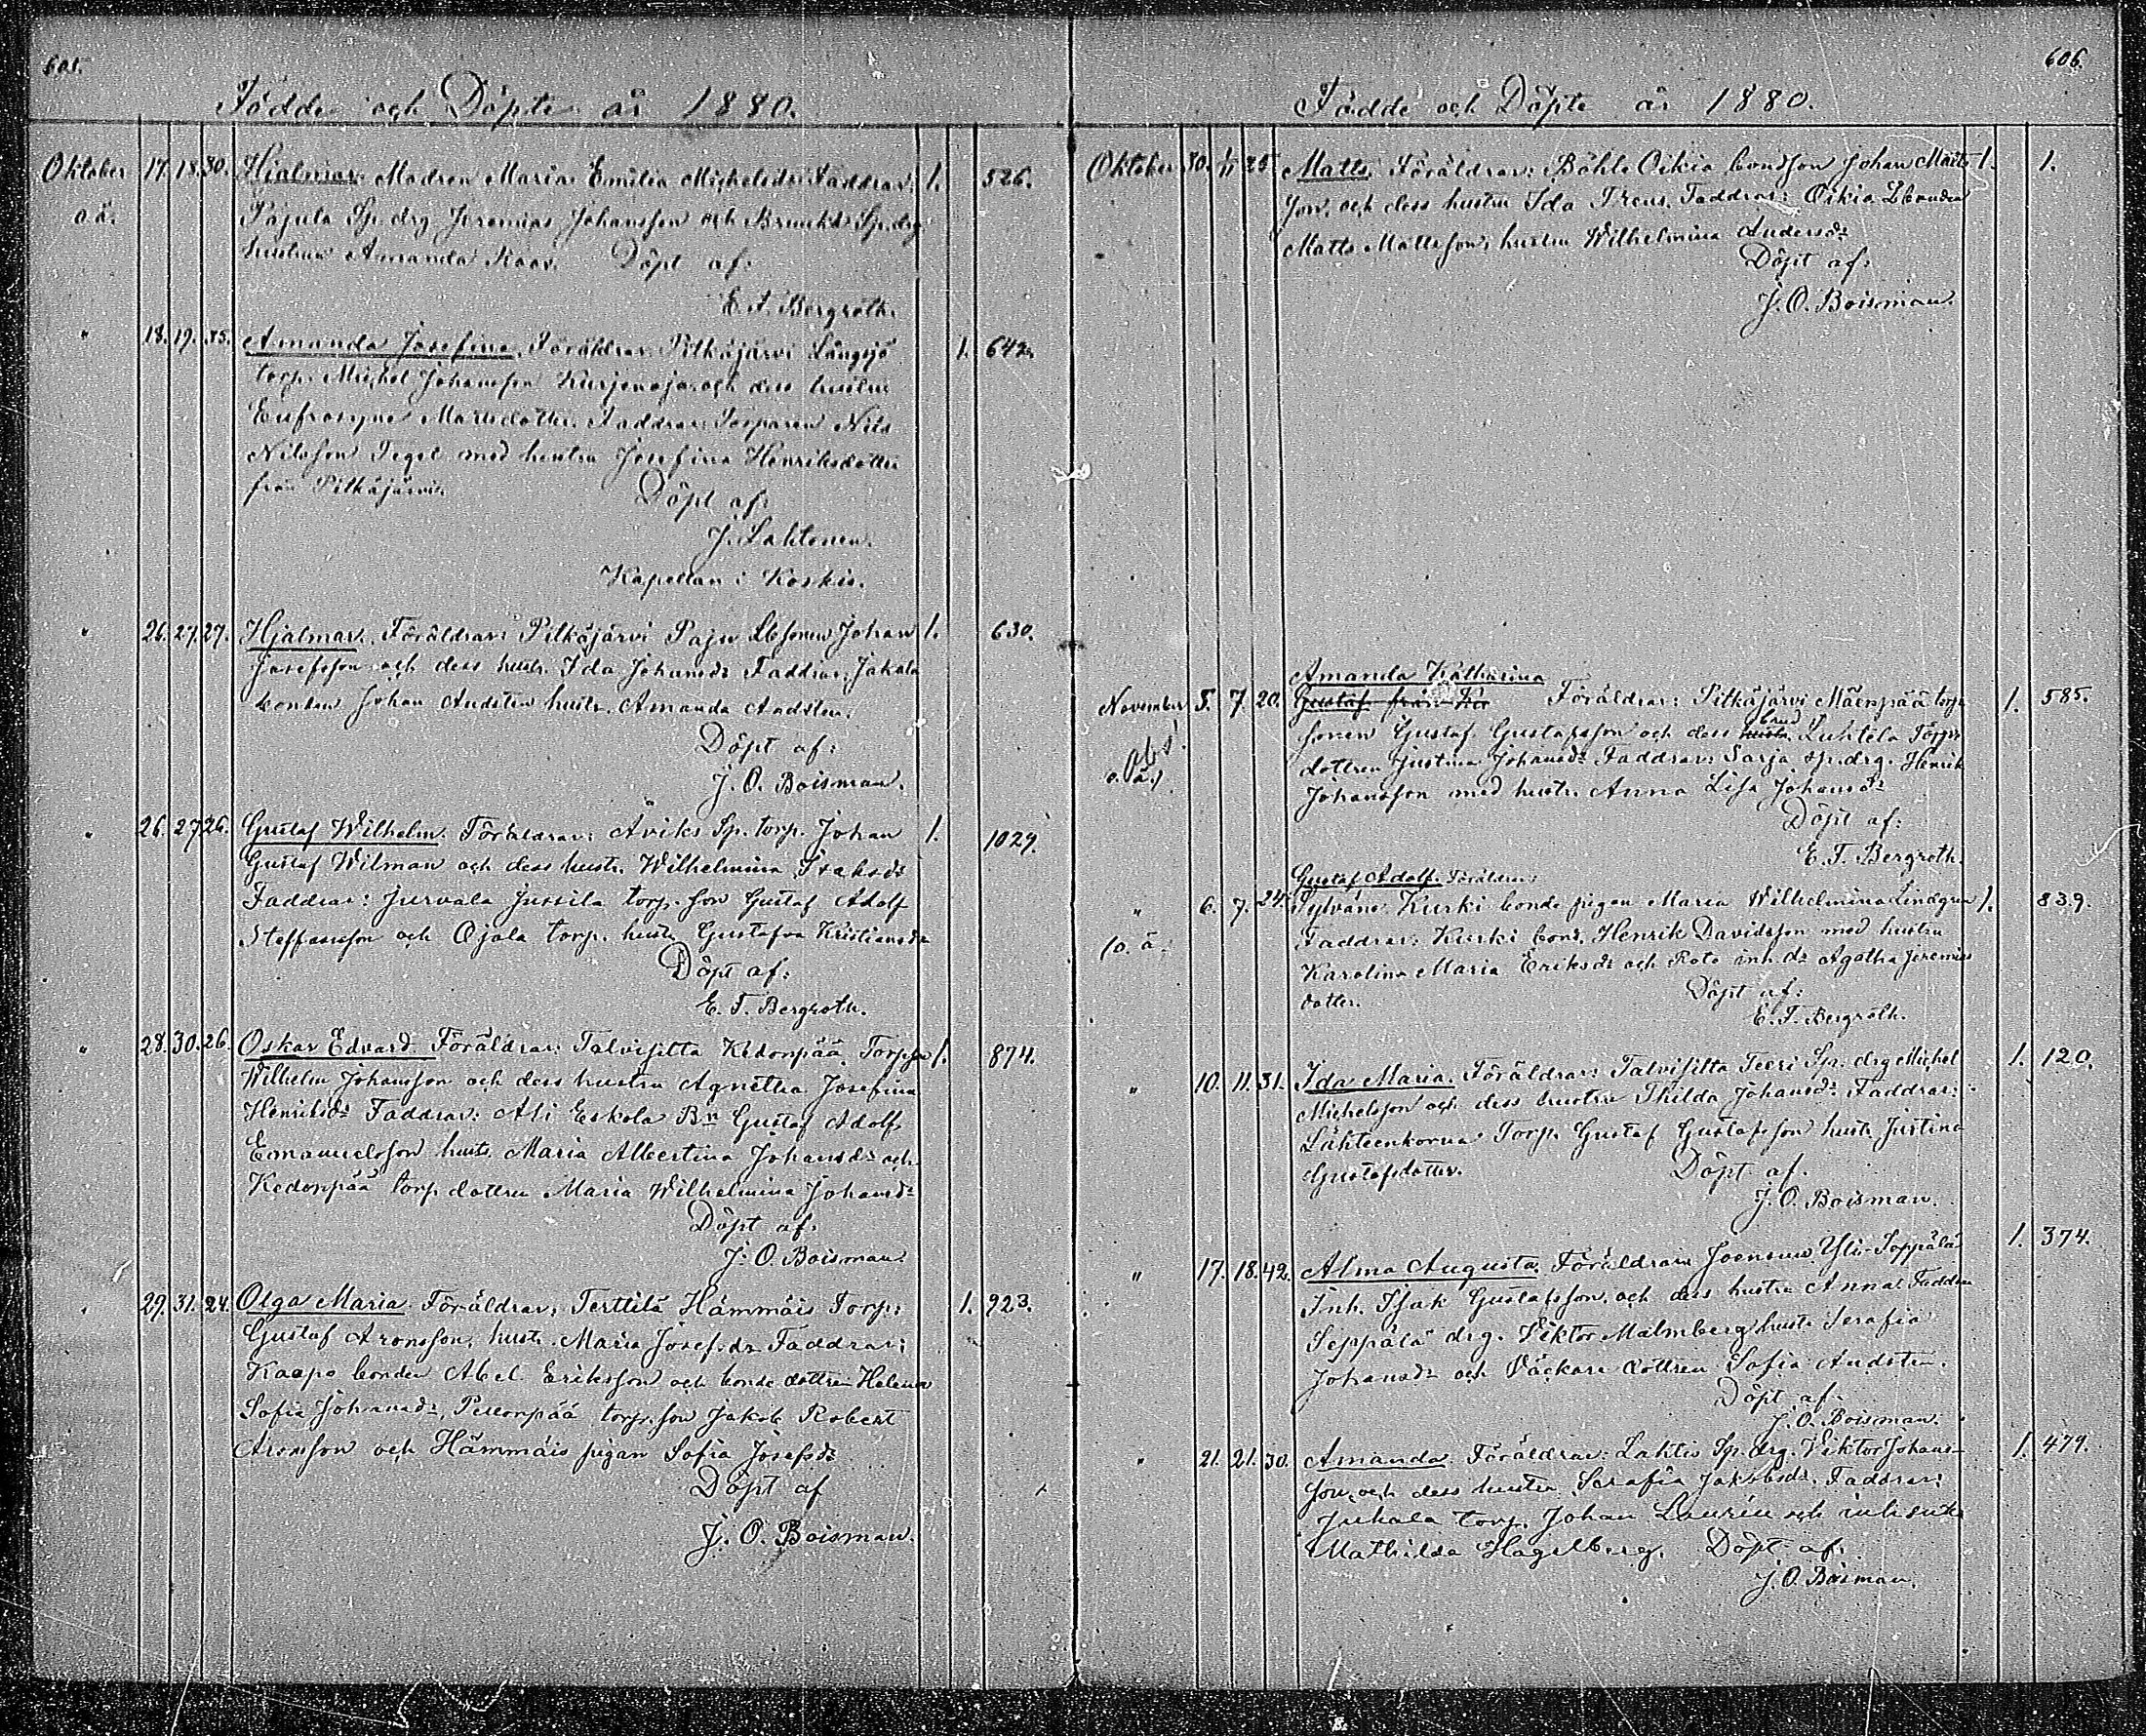 605.
Födde och Döpte år 1880.
Oktober 17. 18. 30. Hjalmar. Modren Maria Emilia Michelsdr Faddrar: 1. 526.
o.ä. Pajula Sp. drg Jeremias Johansson och Bruuks Sp. drg
hustrun Amanda Döpt af:
E. F. Bergroth.
" 18. 19. 35. Amanda Josefina. Föräldrar: Pitkäjärvi Långsjö 1. 642.
torp. Michel Johansson Kurjenoja och dess hustru
Eufrosyne Mattsdotter. Faddrar: Torparen Nils
Nilsson Tegel med hustru Josefina Henriksdotter
från Pitkäjärvi. Döpt af:
J. Lahtonen.
Kapellan i Koskis.
" 26. 27. 27. Hjalmar. Föräldrar: Pitkäjärvi Paju Johan 1. 630.
Josefsson och dess hustr. Ida Johansdr Faddrar: Jakala
bonden Johan Andsten hustr. Amanda Andsten.
Döpt af:
J. O. Boisman.
" 26. 27. 26. Gustaf Wilhelm. Föräldrar: Äviks Sp. torp. Johan 1. 1029.
Gustaf Wilman och dess hustr. Wilhelmina Isaksdr
Faddrar: Jurvala Jussila torp. son Gustaf Adolf
Steffansson och Ojala torp. hustr. Gustafva Kristiansdr
Döpt af:
E. F. Bergroth.
" 28. 30. 26. Oskar Edvard. Föräldrar: Talvisilta Kedonpää Torp. son 1. 874.
Wilhelm Johansson och dess hustru Agnetha Josefina
Henriksdr Faddrar: Ali Eskola Bn Gustaf Adolf
Emanuelsson hustr. Maria Albertina Johansdr och
Kedonpää torp. dottren Maria Wilhelmina Johansdr
Döpt af:
J. O. Boisman.
" 29. 31. 24. Olga Maria. Föräldrar: Terttilä Hämmäis Torp. 1. 923.
Gustaf Aronsson, hustr. Maria Josefsdr Faddrar:
Kaapo bonden Abel Eriksson och bonde dottren Helena
Sofia Johansdr, Pellonpää torp. son Jakob Robert
Aronsson och Hämmäis pigan Sofia Josefsdr
Döpt af
J. O. Boisman.
606.
Födde och Döpte år 1880.
Oktober 30. 1/11 25 Matts. Föräldrar: Böhle Oikia bondson Johan Matts 1. 1.
son, och dess hustru Ida Treus. Faddrar: Oikia
Matts Mattsson, hustru Wilhelmina Andersdr
Döpt af:
J. O. Boisman.
Amanda Katharina
November 5. 7. 20. Gustaf från Ku Föräldrar: Pitkäjärvi Mäenpää torp- 1. 585.
sonen Gustaf Gustafsson och dess hustr. brud Luhtela Torp.
Obs!
o.ä. dottren Justina Johansdr Faddrar: Sarja sp. drg. Henrik
Johansson med hustr. Anna Lisa Johansdr
Döpt af:
E. F. Bergroth.
Gustaf Adolf. Föräldrar:
" 6. 7. 24. Sylväns Kurki bonde pigan Maria Wilhelmina Lindgren 1. 839.
(o. ä. Faddrar: Kurki bond. Henrik Davidsson med hustru
Karolina Maria Eriksdr och Roto inh. dr Agatha Jeremias
dotter. Döpt af:
E. F. Bergroth.
" 10. 11. 31. Ida Maria. Föräldrar: Talvisilta Teeri Sp. drg Michel 1. 120.
Michelsson och dess hustru Thilda Johansdr Faddrar:
Lähteenkorva Torp. Gustaf Gustafsson hustr. Justina
Gustafsdotter. Döpt af.
J. O. Boisman.
" 17. 18. 42. Alma Augusta. Föräldrar: Joensuu Yli-Seppälä 1. 374.
Inh. Isak Gustafsson, och dess hustru Anna. Faddrar
Seppälä drg. Viktor Malmberg hustr. Serafia
Johansdr och Väckare dottren Sofia Andsten.
Döpt af.
J. O. Boisman.
" 21. 21. 30. Amanda Föräldrar: Lahtis Sp. drg. Viktor Johans- 1. 479.
son, och dess hustru Serafia Jakobsdr. Faddrar:
Juhala torp. Johan Laurén och
Mathilda Hagelberg. Döpt af.
J. O. Boisman.